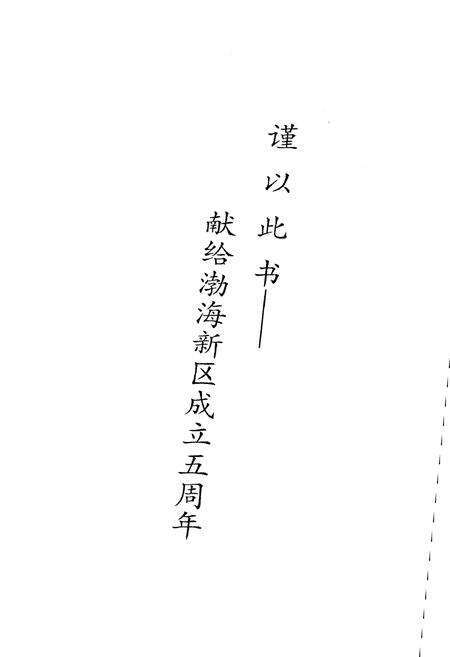 谨以此书——
献给渤海新区成立五周年